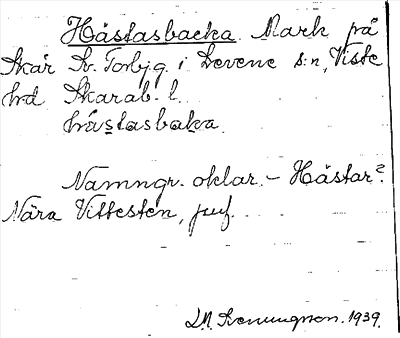 Hästasbacka. Mark på
Skår St. Torbjg. i Levene s:n, Viste
hd Skarab. l.
håstasbaka.
Namngr. oklar. – Hästar?
Nära Vittesten, juf.
1939.